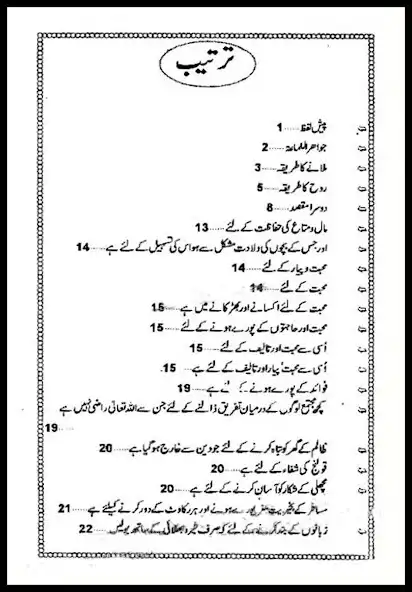 ترتیب
پیش لفظ ..... 1
جواھر اللماعۃ ..... 2
ملانے کا طریقہ ..... 3
روح کا طریقہ ..... 5
دوسرا مقصد ..... 8
مال و متاع کی حفاظت کے لئے ..... 13
اور جس کے بچوں کی ولادت مشکل سے ہو اس کی تسہیل کے لئے ہے ..... 14
محبت و پیار کے لئے ..... 14
محبت کے لئے ..... 14
محبت کے لئے اکسانے اور بھڑکانے میں ہے ..... 15
محبت اور حاجتوں کے پورے ہونے کے لئے ..... 15
اُسی سے محبت اور تالیف کے لئے ..... 15
اُسی سے محبت پیار اور تالیف کے لئے ہے ..... 15
فوائد کے پورے ہونے کے لئے ہے ..... 19
کچھ مجتمع لوگوں کے درمیان تفریق ڈالنے کے لئے جن سے اللہ تعالیٰ راضی نہیں ہے
..... 19
ظالم کے گھر کو تباہ کرنے کے لئے جو دین سے خارج ہو گیا ہے ..... 20
قولنج کی شفاء کے لئے ہے ..... 20
مچھلی کے شکار کو آسان کرنے کے لئے ہے ..... 20
مسافر کے بخیریت سفر پورے ہونے اور ہر رکاوٹ کے دور کرنے کیلئے ہے ..... 21
زبانوں کے بند کرنے کے لئے کہ صرف خیر و بھلائی کے ساتھ بولیں ..... 22